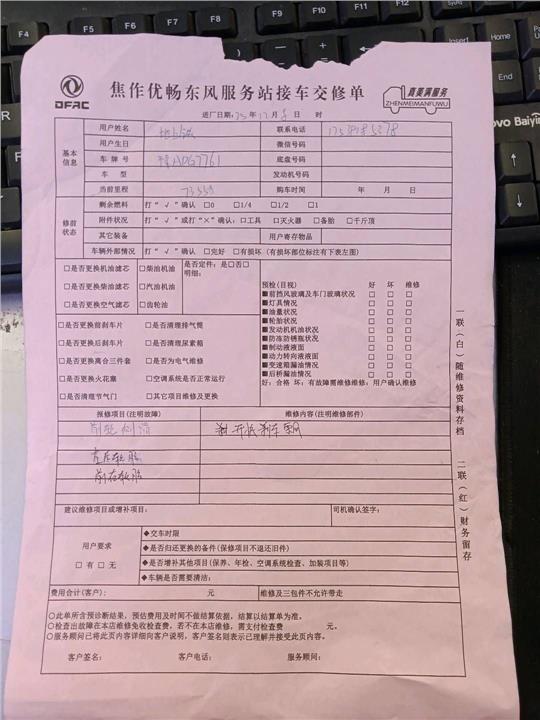 DFAC
焦作优畅东风服务站接车交修单
真美满服务
ZHENMEIMANFUWU
进厂日期:25年12月8日 时
基本信息
用户姓名 联系电话
用户生日 微信号码
车牌号 底盘号码
车型 发动机号码
当前里程 73559 购车时间 年 月 日
修前状态
剩余燃料 打“√”确认 □0 □1/4 □1/2 □1
附件状况 打“√”或打“×”确认:□工具 □灭火器 □备胎 □千斤顶
其它装备 用户寄存物品
车辆外部情况 打“√”确认 □完好 □有损坏(有损坏部位标注有下表左图)
□是否更换机油滤芯 □柴油机油
□是否更换柴油滤芯 □汽油机油
□是否更换空气滤芯 □齿轮油
是否定件:是□否□
明细:
□是否更换前刹车片 □是否清理排气筒
□是否更换后刹车片 □是否清理尿素箱
□是否更换离合三件套 □是否为电气维修
□是否更换火花塞 □空调系统是否正常运行
□是否清理节气门 □其它项目维修及更换
预检(目视) 好 坏 维修
■前挡风玻璃及车门玻璃状况 □ □ □
■灯具情况 □ □ □
■油量状况 □ □ □
■轮胎状况 □ □ □
■发动机机油状况 □ □ □
■防冻防锈瓶状况 □ □ □
■制动液液面 □ □ □
■动力转向液液面 □ □ □
■变速箱漏油情况 □ □ □
■后桥漏油情况 □ □ □
好:合格 坏:有故障需维修维修:用户确认维修
报修项目(注明故障) 维修内容(注明维修部件)
建议维修项目或增补项目: 司机确认签字:
用户要求
□有 □无
◆交车时限
◆是否归还更换的备件(保修项目不退还旧件)
◆是否增补其他项目(保养、年检、空调系统检查、加装项目等)
◆车辆是否需要清洁:
费用合计(客户): 元 维修及三包件不允许带走
○此单所含预诊断结果,预估费用及时间不做结算依据,结算以结算单为准。
○检查出故障在本店维修免收检查费,若不在本店维修,需支付检查费 元。
○服务顾问已将此页内容详细向客户说明,客户签名则表示已理解并接受此页内容。
客户签名: 客户电话: 服务顾问:
一联(白)随维修资料存档
二联(红)财务留存
Insert
Home
Delete
End
Lenovo Baiying